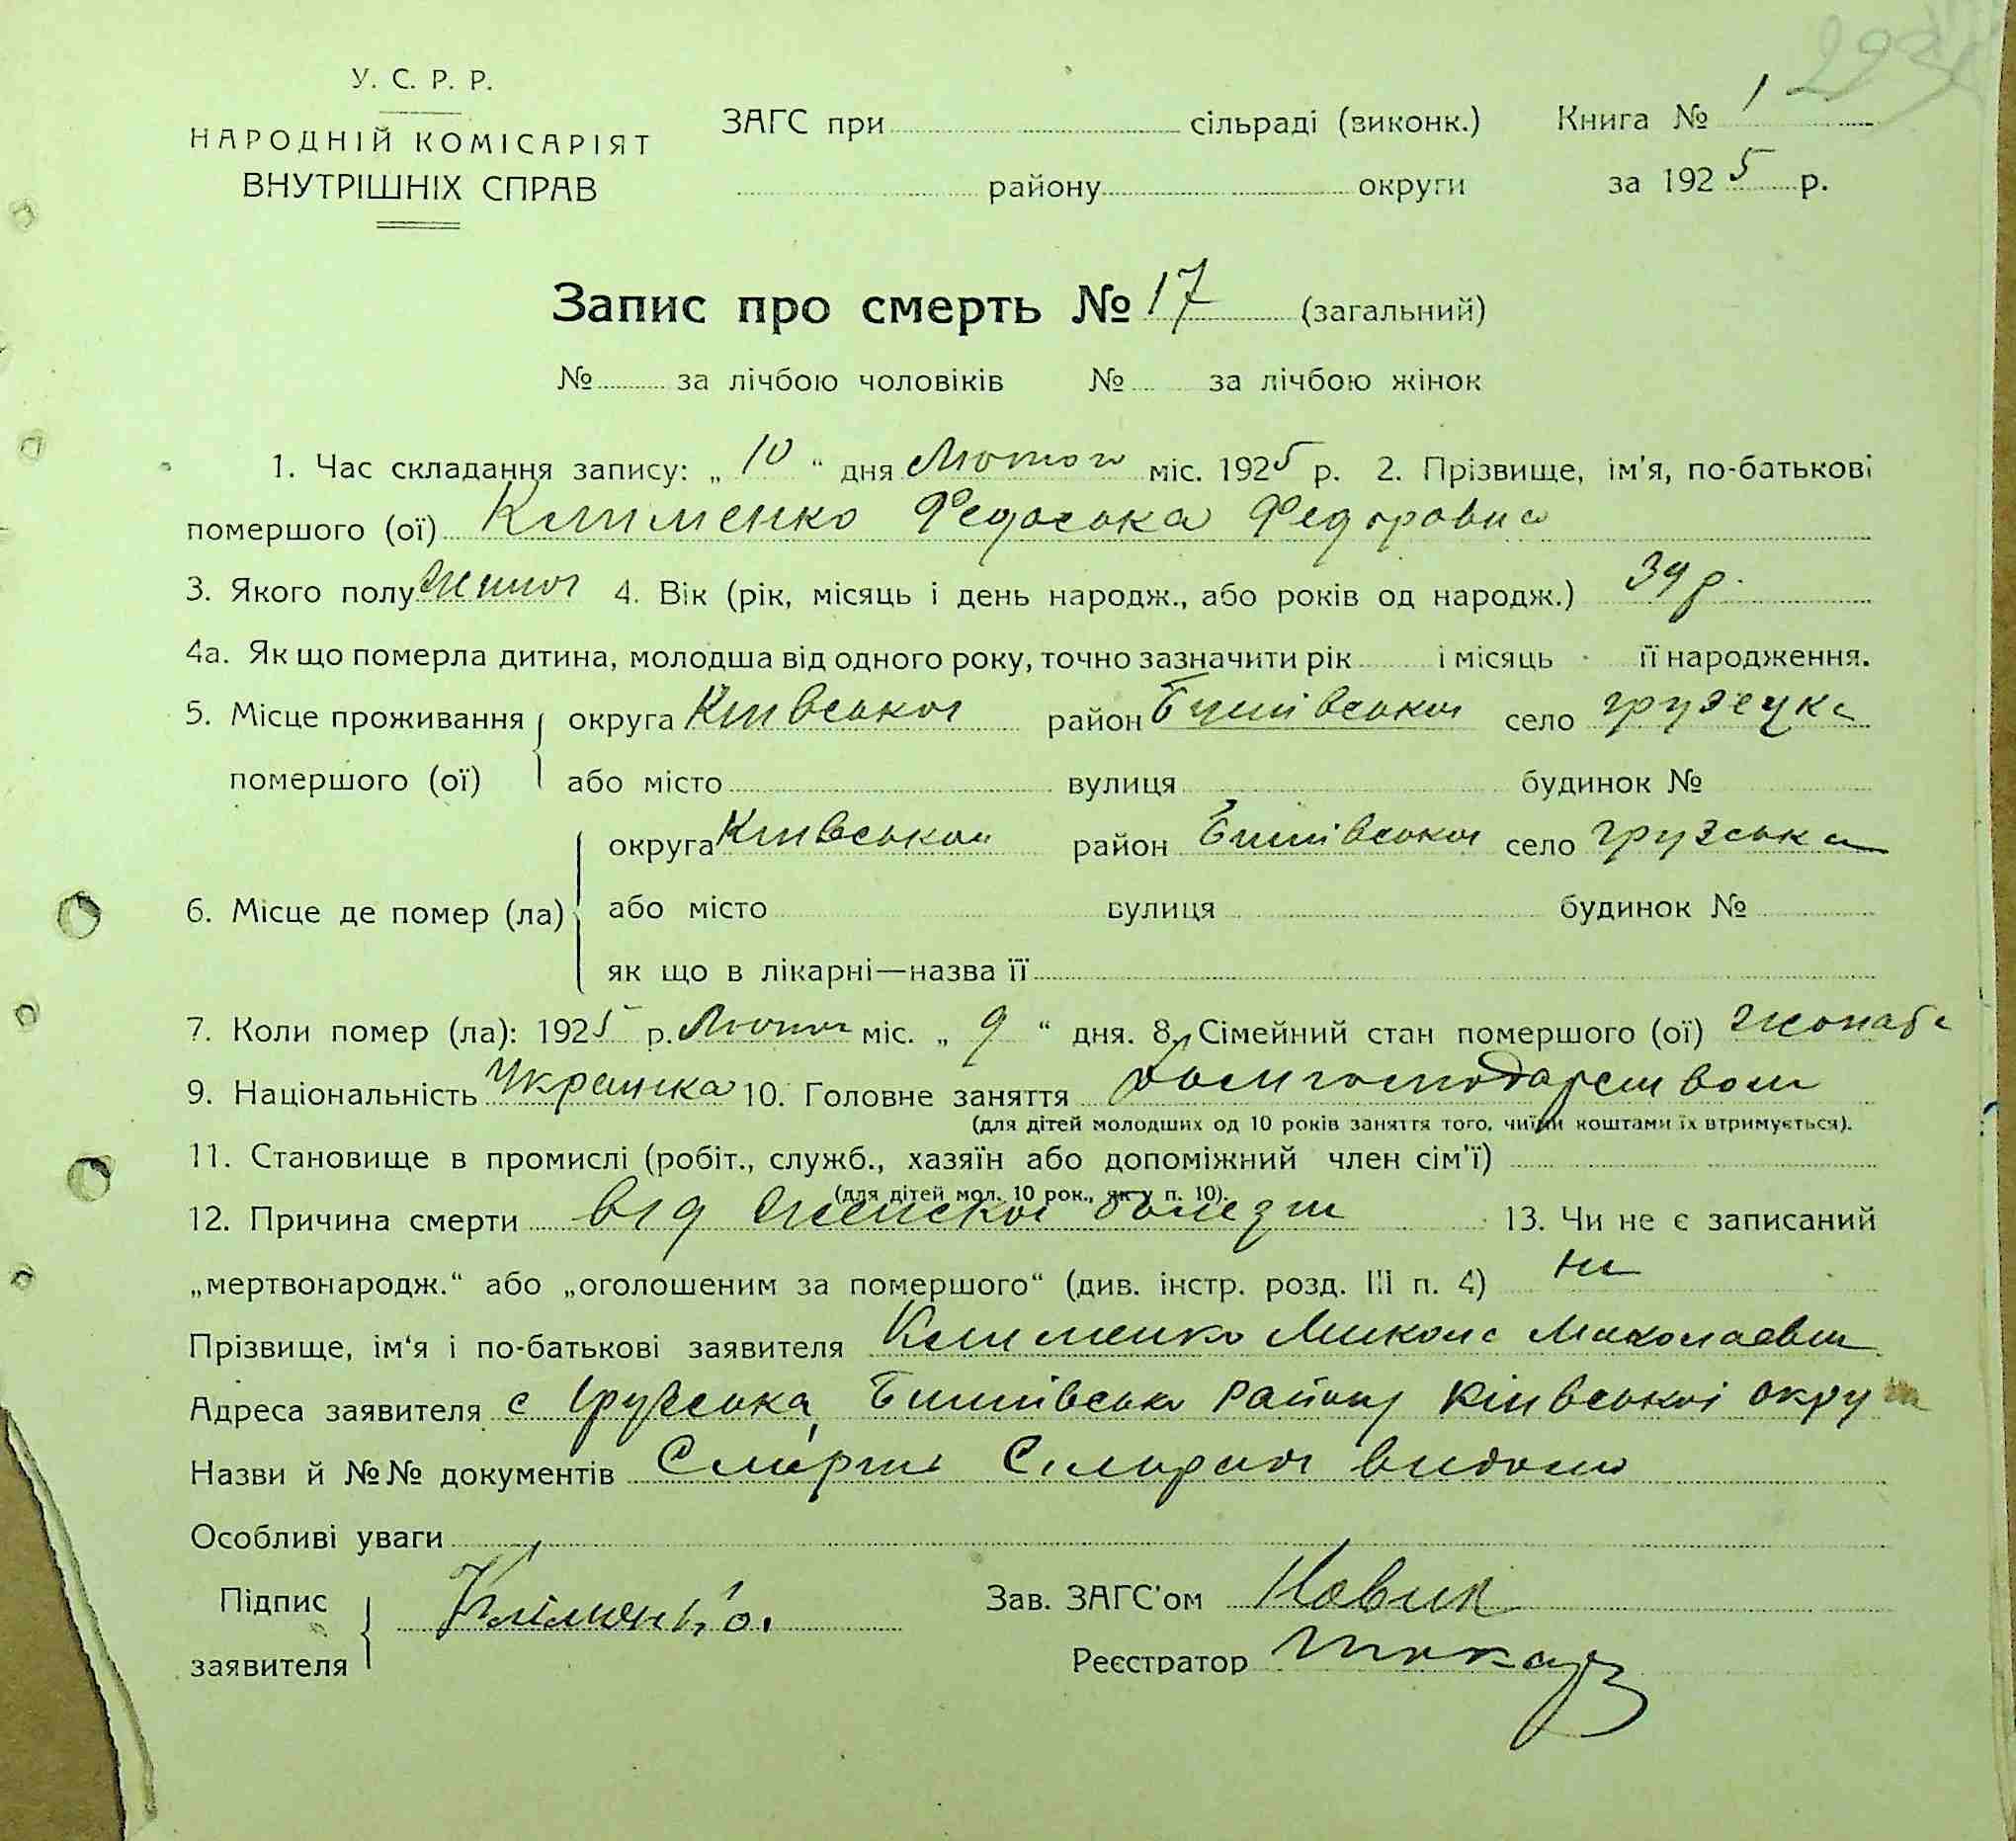 У. С. Р. Р.
НАРОДНІЙ КОМІСАРІЯТ
ВНУТРІШНІХ СПРАВ
ЗАГС при сільраді (виконк.)
району округи
Книга № 1
за 1925 р.
Запис про смерть № 17 (загальний)
№ за лічбою чоловіків № за лічбою жінок
1. Час складання запису: „ 10 “ дня Лютого міс. 1925 р. 2. Прізвище, ім'я, по-батькові
помершого (ої) Клименко Федоська Федоровна
3. Якого полу 4. Вік (рік, місяць і день народж., або років од народж.) 39 р.
4а. Як що померла дитина, молодша від одного року, точно зазначити рік і місяць її народження.
5. Місце проживання округа Київської район Бишівської село
помершого (ої) або місто вулиця будинок №
округа Київської район Бишівської село Грузська
6. Місце де помер (ла) або місто вулиця будинок №
як що в лікарні—назва її
7. Коли помер (ла): 1925 р. міс. „ 9 “ дня. 8. Сімейний стан помершого (ої)
9. Національність Українка 10. Головне заняття домгосподарством
(для дітей молодших од 10 років заняття того, чиїми коштами їх втримується).
11. Становище в промислі (робіт., служб., хазяїн або допоміжний член сім'ї)
(для дітей мол. 10 рок., як у п. 10).
12. Причина смерти від женської болезни 13. Чи не є записаний
„мертвонародж.“ або „оголошеним за помершого“ (див. інстр. розд. III п. 4) ни
Прізвище, ім'я і по-батькові заявителя Клименко Микола
Адреса заявителя с Грузська, Бишівсько Району Київської округи
Назви й №№ документів Смерть видомо
Особливі уваги
Підпис
заявителя Кліменко.
Зав. ЗАГС'ом Новик
Реєстратор